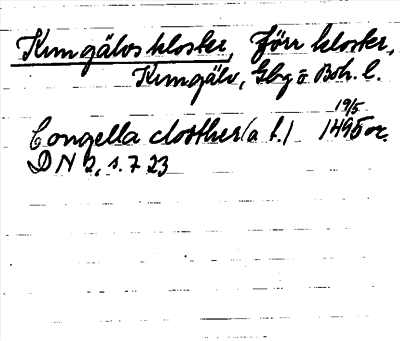 Kungälvs kloster, förr kloster,
Kungälv, Gbg o Boh. l.
19/5
Congella closther (a t.) 1495 or.
DN 2, s. 723